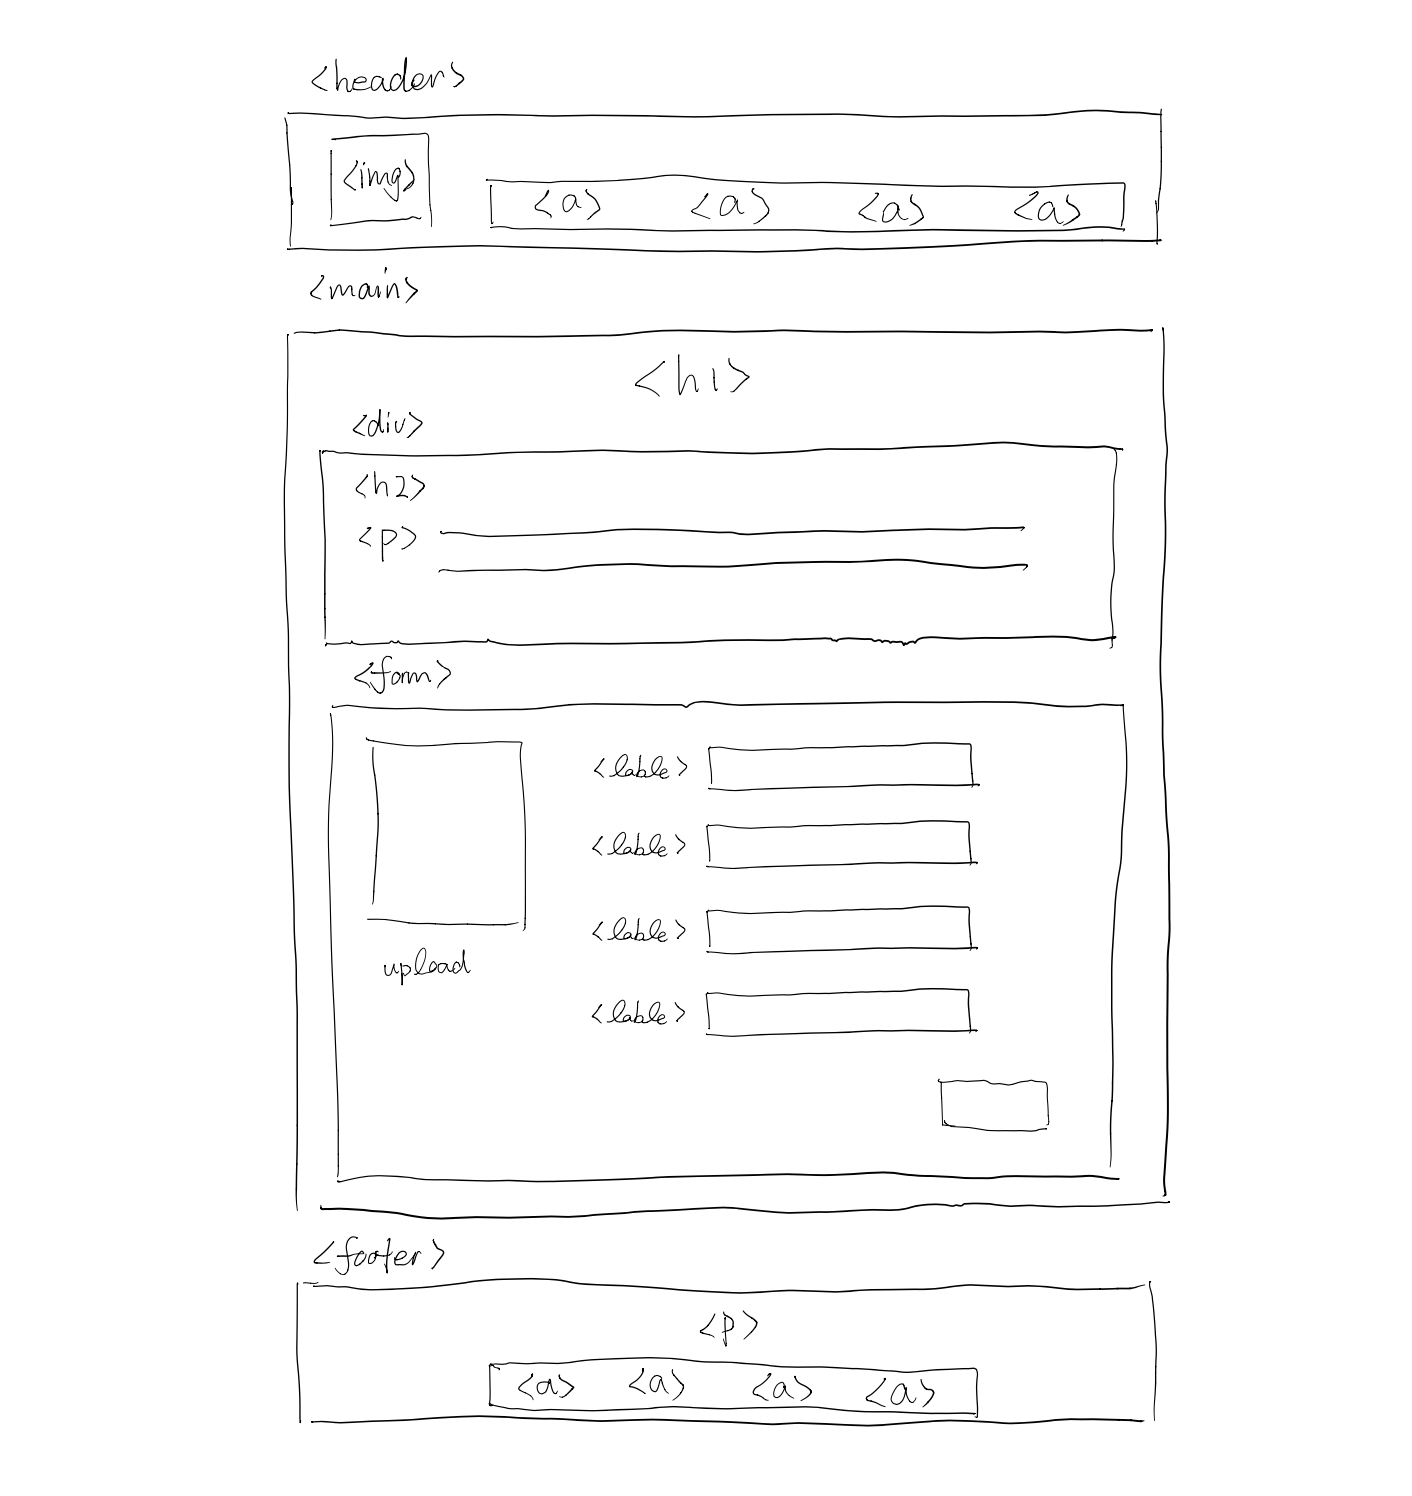 <header>
<img>
<a> <a> <a> <a>
<main>
<h1>
<div>
<h2>
<p>
<form>
<lable>
<lable>
<lable>
<lable>
upload
<footer>
<p>
<a> <a> <a> <a>